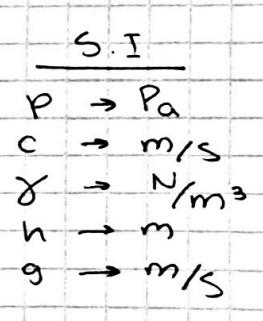 S.I
p → Pa
c → m/s
γ → N/m³
h → m
g → m/s